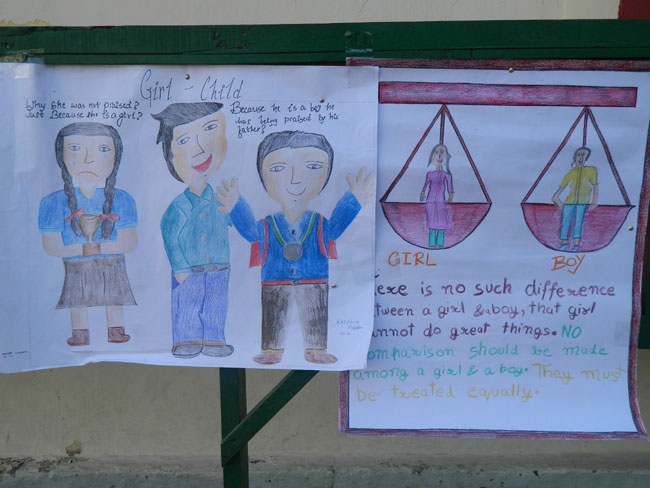 Girl - Child
Why she was not praised?
Just Because she is a girl?
Because he is a boy he
was being praised by his
father?
GIRL
BOY
ere is no such difference
tween a girl & a boy, that girl
nnot do great things. NO
omparison should be made
among a girl & a boy. They must
be treated equally.